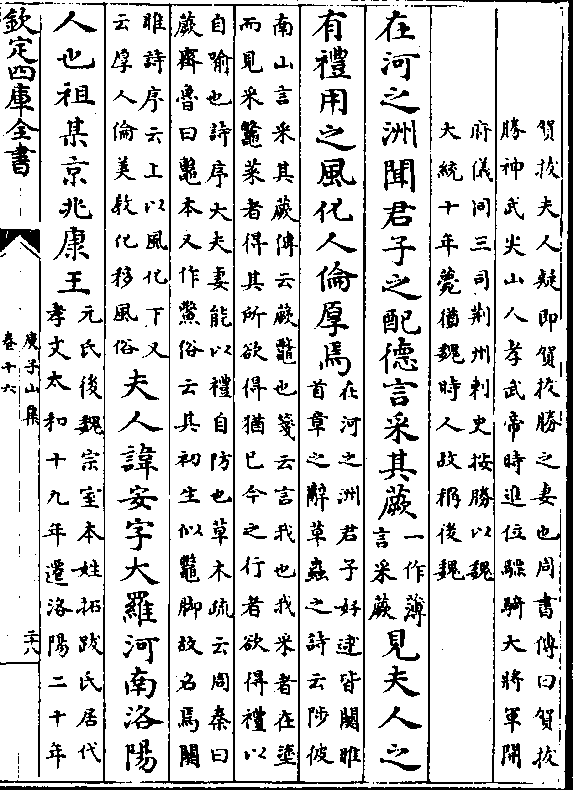 賀拔夫人疑即賀拔勝之妻也周書傳曰賀拔
勝神武尖山人孝武帝時進位驃騎大將軍開
府儀同三司荆州刺史按勝以魏
大統十年薨猶魏時人故稱後魏
在河之洲聞君子之配德言采其蕨
一作薄
言采蕨
見夫人之
有禮用之風化人倫厚焉
在河之洲君子好逑皆關雎
首章之辭草蟲之詩云陟彼
南山言采其蕨傳云蕨鼈也箋云言我也我采者在塗
而見采鼈菜者得其所欲得猶已今之行者欲得禮以
自喻也詩序大夫妻能以禮自防也草木疏云周秦曰
蕨齊魯曰鼈本又作虌俗云其初生似鼈脚故名焉關
雎詩序云上以風化下又
云厚人倫美教化移風俗
夫人諱安字大羅河南洛陽
人也祖某京兆康王
元氏後魏宗室本姓拓跋氏居代
孝文太和十九年遷洛陽二十年
欽定四庫全書
庾子山集
卷十六